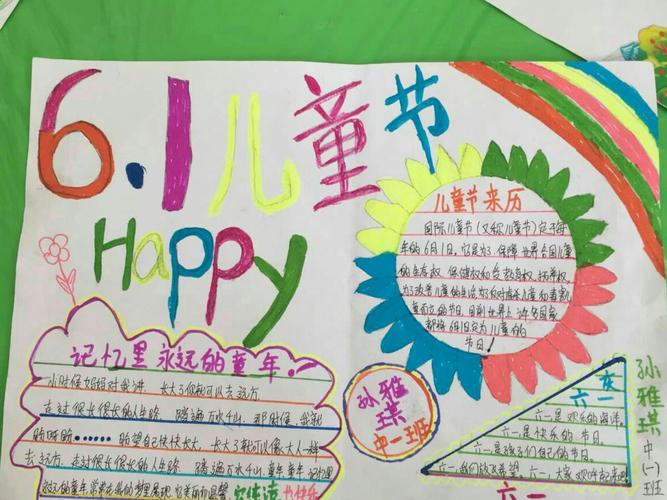 6.1儿童节
Happy
儿童节来历
国际儿童节(又称儿童节)定于每
年的6月1日。它是为了保障世界各国儿童
的生存权 保健权和受教育权 抚养权
为了改善儿童的生活 为了反对虐杀儿童和毒害
儿童的节日 目前世界上许多国家
都将6月1日定为儿童的
节日!
记忆里永远的童年!
小时候妈妈对我讲 长大了你就可以去远方
走过很长很长的人生路 踏遍万水千山 那时候 我就
盼呀盼…… 盼望自己快快长大 长大了就可以像大人一样
去远方 走过很长很长的人生路 踏遍万水千山 童年 童年 记忆里
永远的童年 常常在我的梦里展现
快乐
孙雅
琪
中一班
六一
六一是欢乐的海洋。
六一是快乐的节日。
六一是孩子们自己的节日。
六一 大家欢呼起来吧!
六一
孙雅琪中(一)班